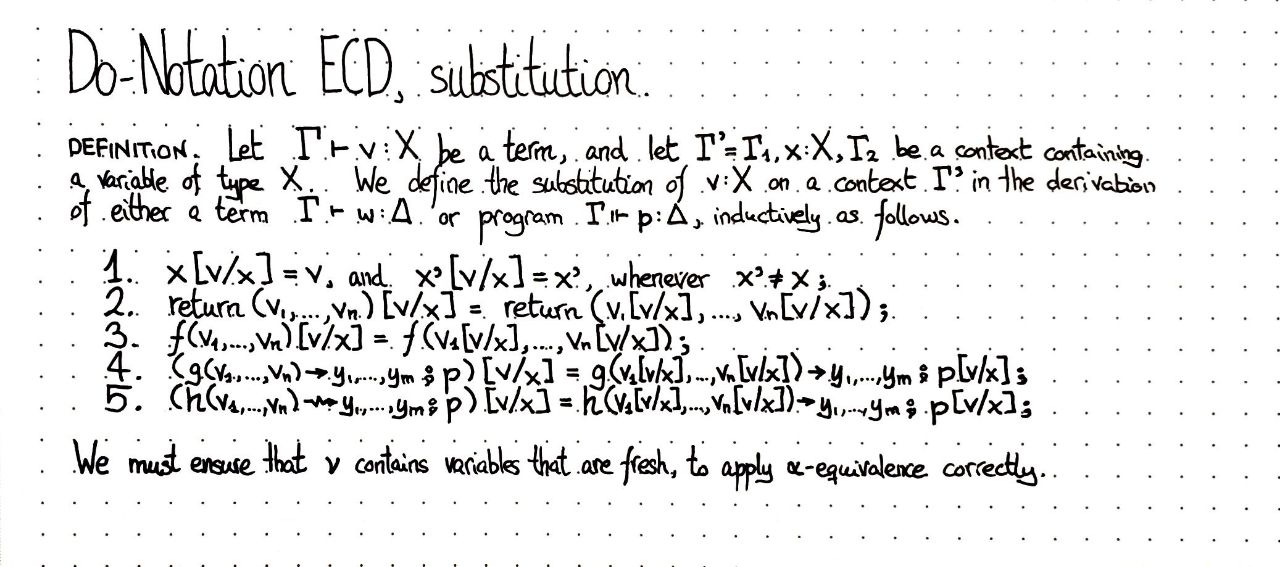 Do-Notation ECD, substitution.
DEFINITION. Let Γ ⊢ v : X be a term, and let Γ' = Γ₁, x:X, Γ₂ be a context containing
a variable of type X. We define the substitution of v:X on a context Γ' in the derivation
of either a term Γ ⊢ w:Δ or program Γ ⊩ p:Δ, inductively as follows.
1. x[v/x] = v, and x'[v/x] = x', whenever x' ≠ x;
2. return(v₁,...,vₙ)[v/x] = return(v₁[v/x],..., vₙ[v/x]);
3. f(v₁,...,vₙ)[v/x] = f(v₁[v/x],..., vₙ[v/x]);
4. (g(v₁,...,vₙ) → y₁,...,yₘ ⨟ p)[v/x] = g(v₁[v/x],...,vₙ[v/x]) → y₁,...,yₘ ⨟ p[v/x];
5. (h(v₁,...,vₙ) ⇝ y₁,...,yₘ ⨟ p)[v/x] = h(v₁[v/x],...,vₙ[v/x]) → y₁,...,yₘ ⨟ p[v/x];
We must ensure that v contains variables that are fresh, to apply α-equivalence correctly.